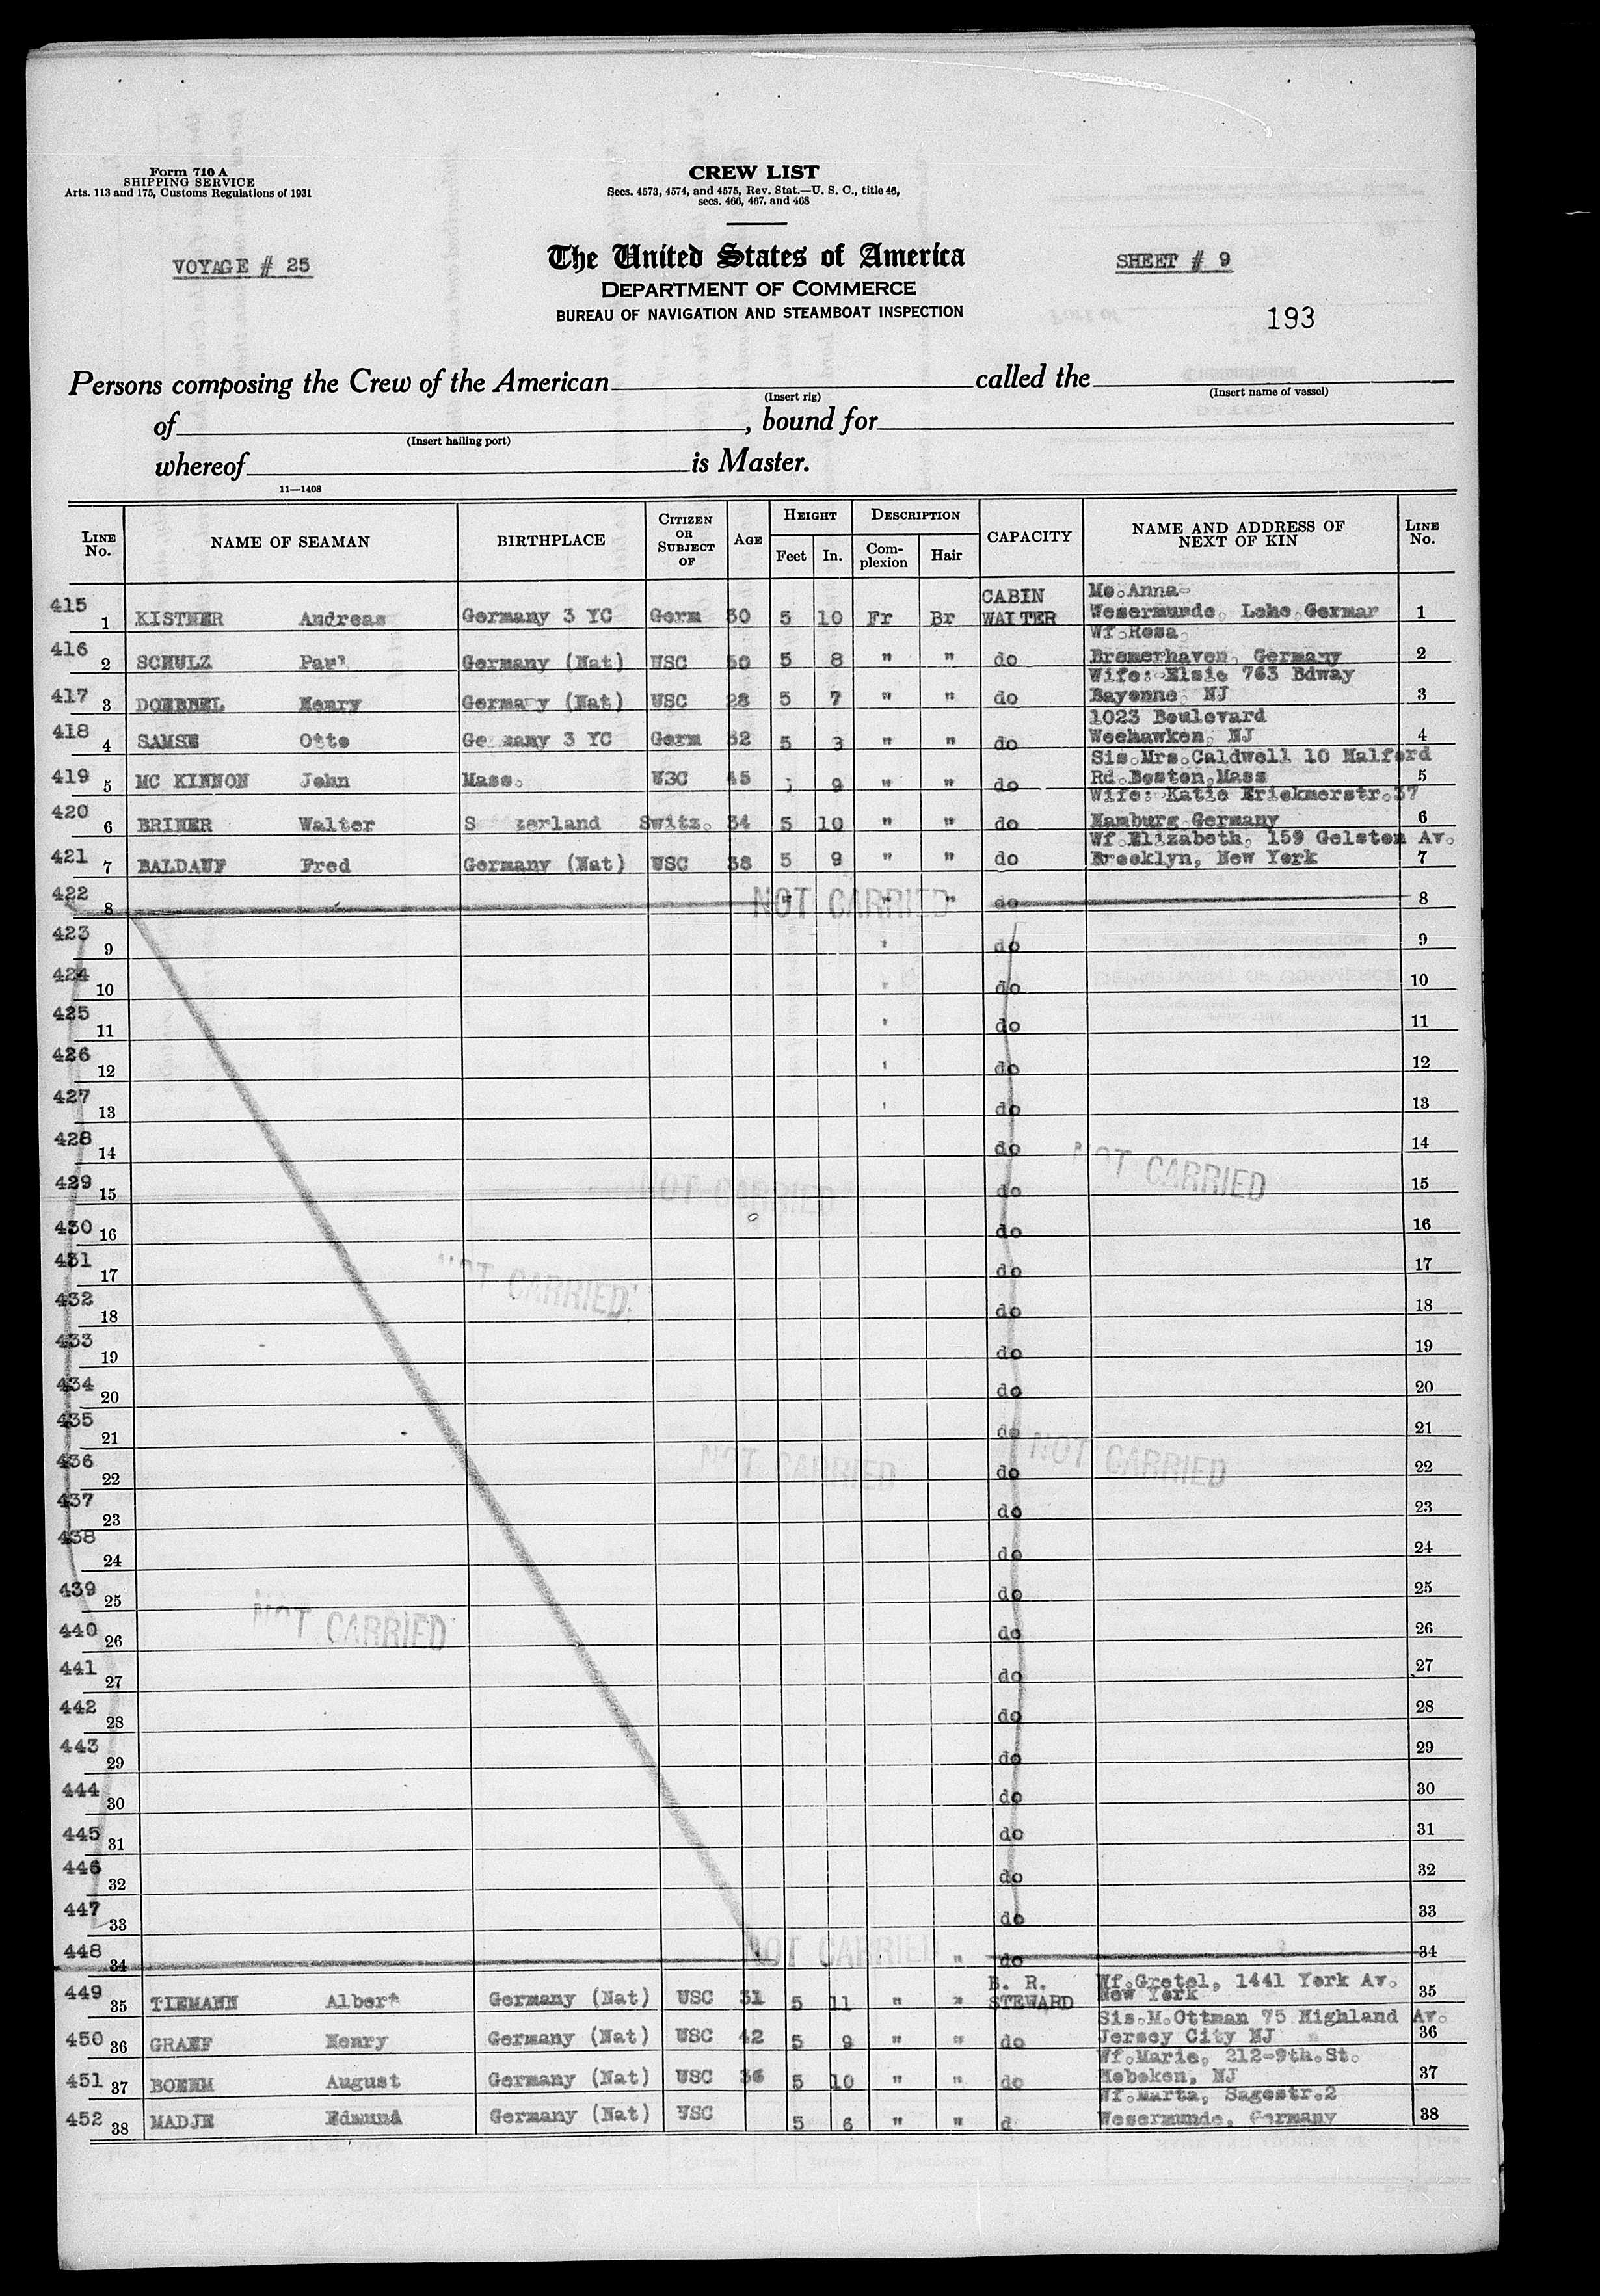 Form 710 A
SHIPPING SERVICE
Arts. 113 and 175, Customs Regulations of 1931
CREW LIST
Secs. 4573, 4574, and 4575, Rev. Stat.—U. S. C., title 46,
secs. 466, 467, and 468
VOYAGE # 25
The United States of America
SHEET # 9
DEPARTMENT OF COMMERCE
BUREAU OF NAVIGATION AND STEAMBOAT INSPECTION
193
Persons composing the Crew of the American called the
(Insert rig) (Insert name of vessel)
of , bound for
(Insert hailing port)
whereof is Master.
11—1408
LINE No. NAME OF SEAMAN BIRTHPLACE CITIZEN OR SUBJECT OF AGE HEIGHT Feet In. DESCRIPTION Complexion Hair CAPACITY NAME AND ADDRESS OF NEXT OF KIN LINE No.
415 1 KISTNER Andreas Germany 3 YC Germ 30 5 10 Fr Br CABIN WAITER Mo.Anna- Wesermunde, Lehe.German 1
416 2 SCHULZ Paul Germany (Nat) USC 50 5 8 " " do Wf.Rosa. Bremerhaven, Germany 2
417 3 DOEBBEL Henry Germany (Nat) USC 28 5 7 " " do Wife: Elsie 763 Bdway Bayonne NJ 3
418 4 SAMSE Otto Ge many 3 YC Germ 32 5 3 " " do 1023 Boulevard Weehawken, NJ 4
419 5 MC KINNON John Mass. USC 45 9 " " do Sis.Mrs.Caldwell 10 Malford Rd.Boston,Mass 5
420 6 BRINER Walter S zerland Switz. 34 5 10 " " do Wife: Katie Erickmerstr.37 Hamburg Germany 6
421 7 BALDAUF Fred Germany (Nat) USC 38 5 9 " " do Wf.Elizabeth, 159 Gelston Av. Brooklyn, New York 7
422 8 NOT CARRIED " " " do 8
423 9 do 9
424 10 do 10
425 11 do 11
426 12 do 12
427 13 do 13
428 14 do 14
NOT CARRIED
429 15 do 15
NOT CARRIED
430 16 do 16
431 17 do 17
NOT CARRIED
432 18 do 18
433 19 do 19
434 20 do 20
435 21 do 21
NOT CARRIED NOT CARRIED
436 22 do 22
437 23 do 23
438 24 do 24
439 25 do 25
NOT CARRIED
440 26 do 26
441 27 do 27
442 28 do 28
443 29 do 29
444 30 do 30
445 31 do 31
446 32 do 32
447 33 do 33
448 34 NOT CARRIED " do 34
449 35 TIEMANN Albert Germany (Nat) USC 31 5 11 " " B. R. STEWARD Wf.Gretel, 1441 York Av. New York 35
450 36 GRANF Henry Germany (Nat) USC 42 5 9 " " do Sis.M.Ottman 75 Highland Av. Jersey City NJ 36
451 37 BOEHM August Germany (Nat) USC 36 5 10 " " do Wf.Marie, 212-9th.St. Hoboken, NJ 37
452 38 MADJE Edmund Germany (Nat) USC 5 6 " " d Wf.Marta, Sagestr.2 Wesermunde, Germany 38